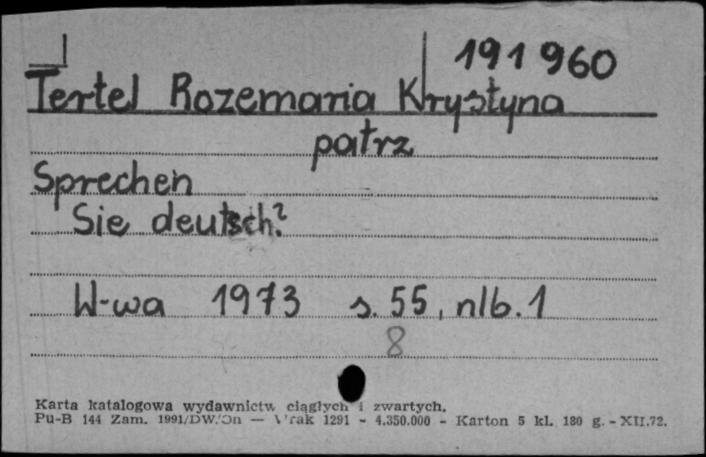 191960
Tertel Rozemaria Krystyna
patrz
Sprechen
Sie deutsch?
W-wa 1973 s. 55, nlb. 1
8
Karta katalogowa wydawnictw ciągłych i zwartych.
Pu-B 144 Zam. 1991/DW/On — 1291 - 4.350.000 - Karton 5 kl. 180 g. - XII.72.